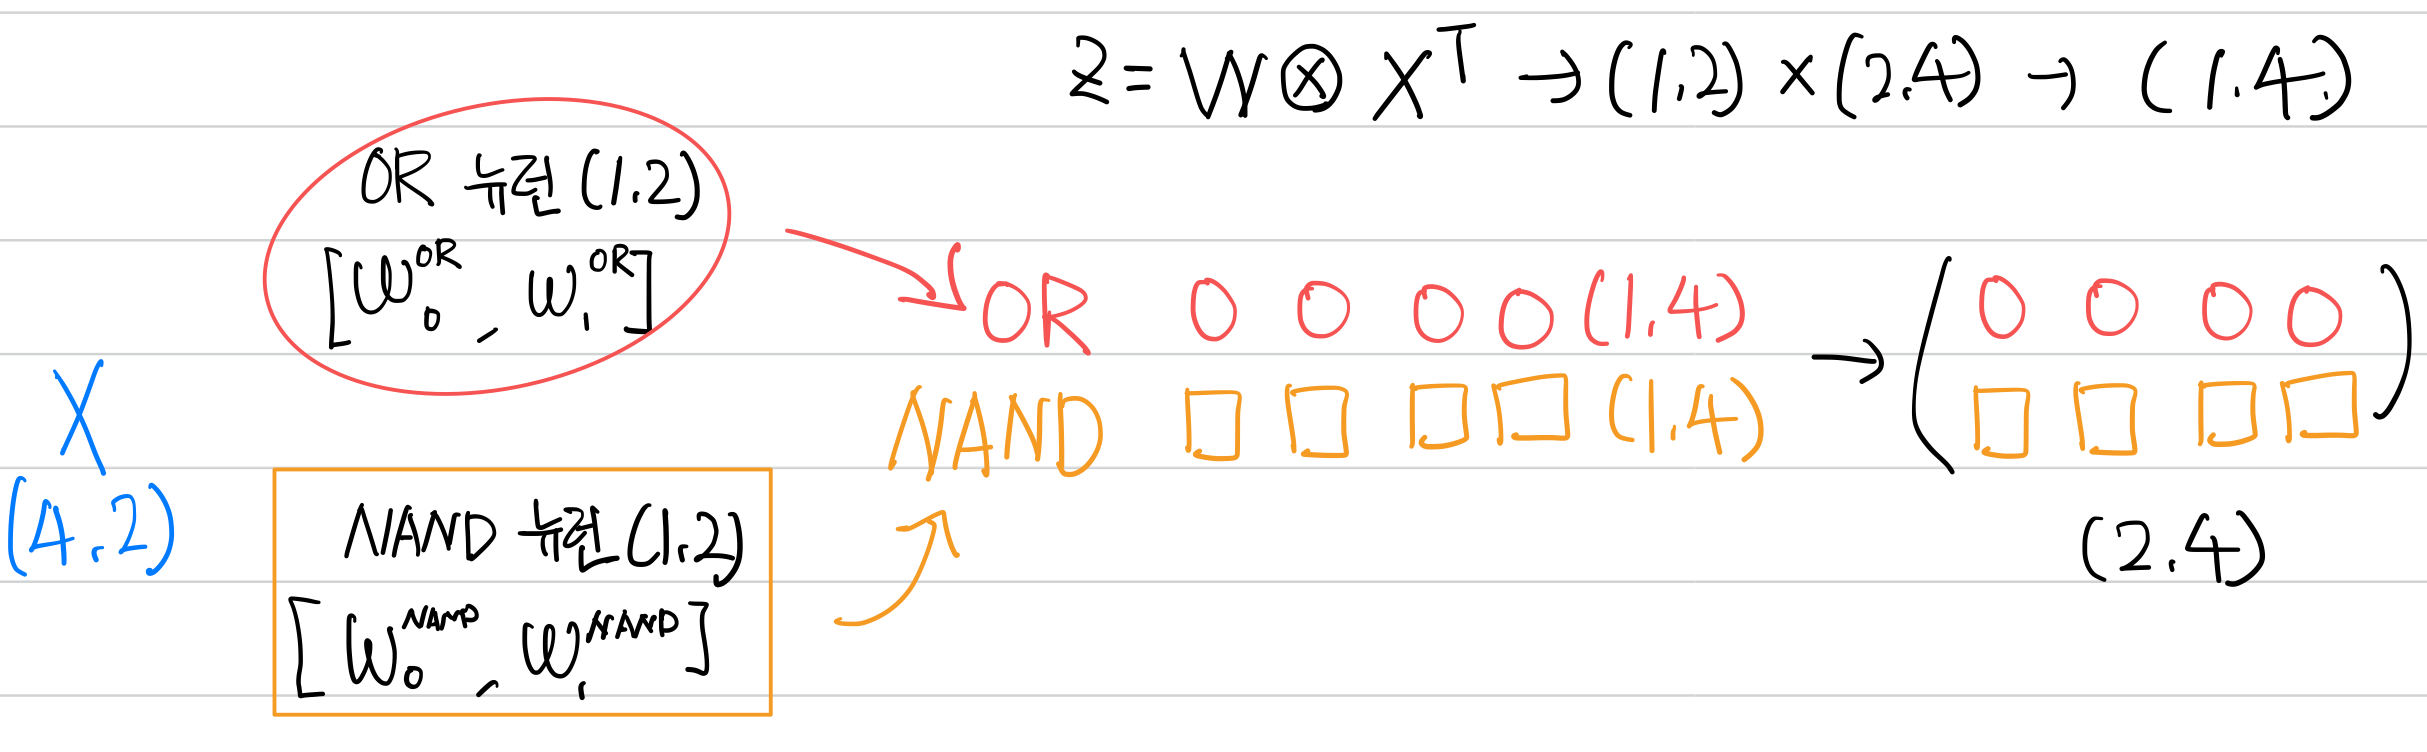 Z = W ⊗ X^T → (1.2) × (2.4) → (1.4)
OR 뉴런 (1.2)
[W_0^OR , W_1^OR]
X
(4.2)
NAND 뉴런 (1.2)
[W_0^NAND , W_1^NAND]
OR O O O O (1.4)
NAND □ □ □ □ (1.4)
→ ( O O O O
□ □ □ □ )
(2.4)